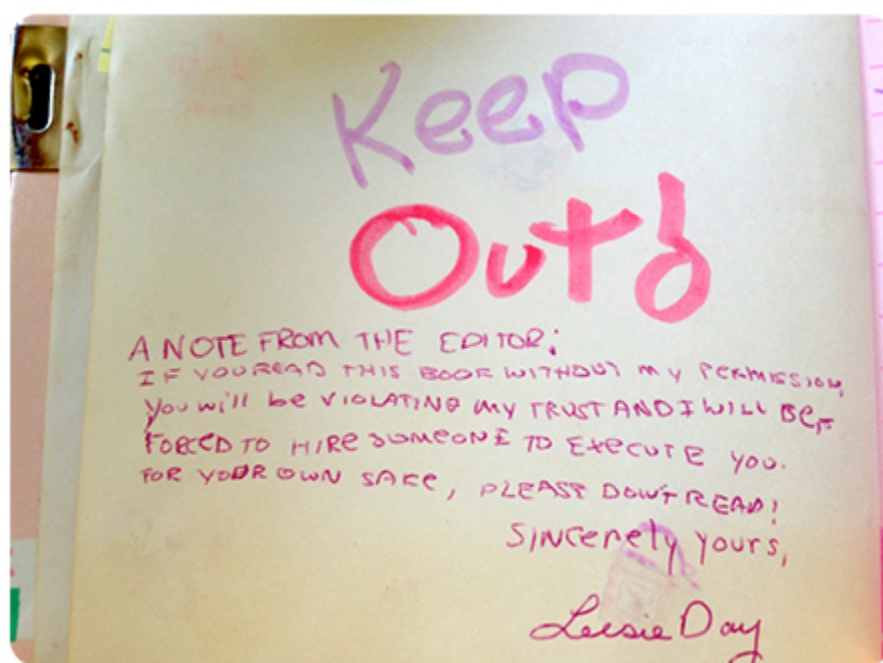 Keep
Out!
A NOTE FROM THE EDITOR:
IF YOU READ THIS BOOK WITHOUT MY PERMISSION,
You will be VIOLATING MY TRUST AND I WILL BE
FORCED TO HIRE SOMEONE TO EXECUTE YOU.
FOR YOUR OWN SAKE, PLEASE DON'T READ!
Sincerely yours,
Day